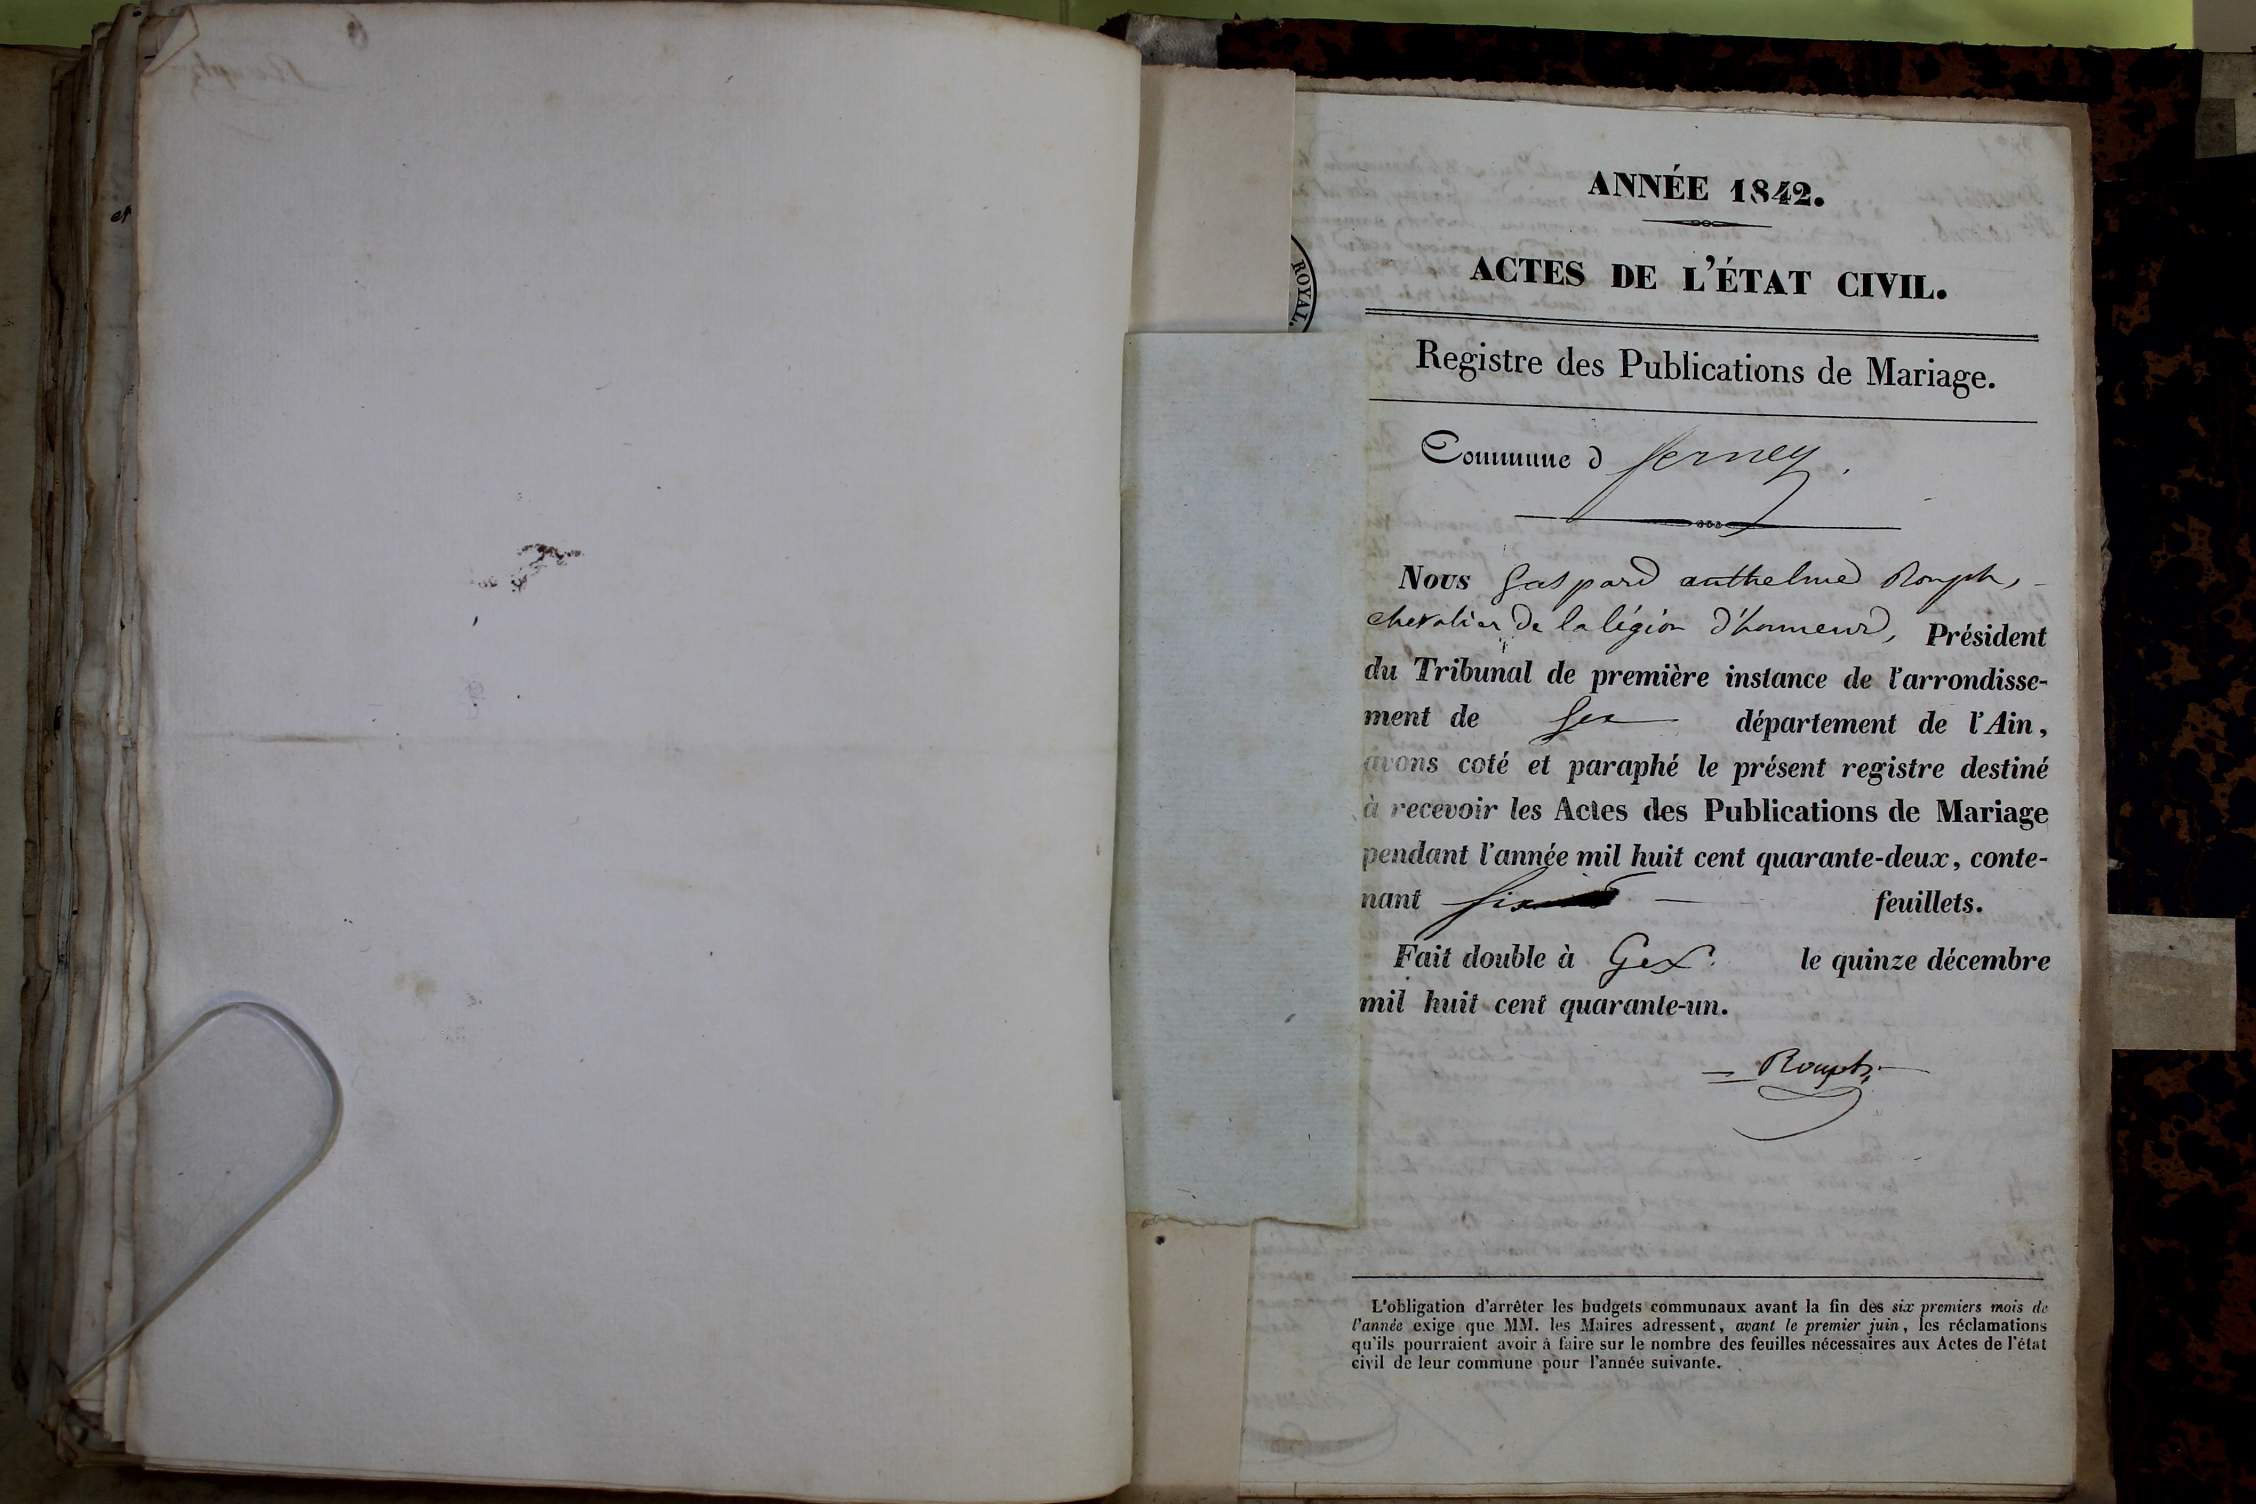 ANNÉE 1842.
ACTES DE L'ÉTAT CIVIL.
ROYAL.
Registre des Publications de Mariage.
Commune d ferney.
Nous Gaspard anthelme Rouph,
chevalier de la légion d'honneur, Président
du Tribunal de première instance de l'arrondisse-
ment de Gex département de l'Ain,
avons coté et paraphé le présent registre destiné
à recevoir les Actes des Publications de Mariage
pendant l'année mil huit cent quarante-deux, conte-
nant six feuillets.
Fait double à Gex. le quinze décembre
mil huit cent quarante-un.
Rouph
L'obligation d'arrêter les budgets communaux avant la fin des six premiers mois de
l'année exige que MM. les Maires adressent, avant le premier juin, les réclamations
qu'ils pourraient avoir à faire sur le nombre des feuilles nécessaires aux Actes de l'état
civil de leur commune pour l'année suivante.